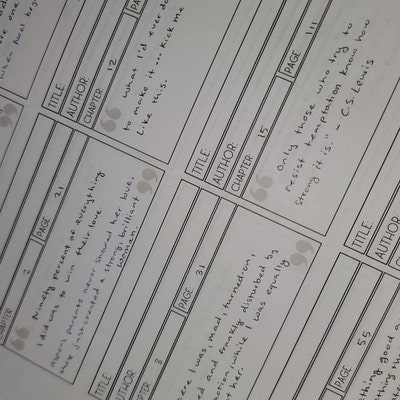 when
TITLE:
AUTHOR:
CHAPTER: 12
what I'd ever do
to make it... Kick me
Like this.
PAGE: 111
TITLE:
AUTHOR:
CHAPTER: 15
Only those who try to
resist temptation know how
strong it is." - C.S. Lewis
CHAPTER 2
PAGE: 21
Ninety percent of everything
I did was to win their love.
parents never showed her love,
they just created a strong, brilliant
woman.
TITLE:
AUTHOR:
PTER: 8
PAGE: 31
ere I was, mad, turned-on,
ed and frankly disturbed by
ction, while I was equally
TITLE:
AUTHOR
PAGE: 55
thing good a